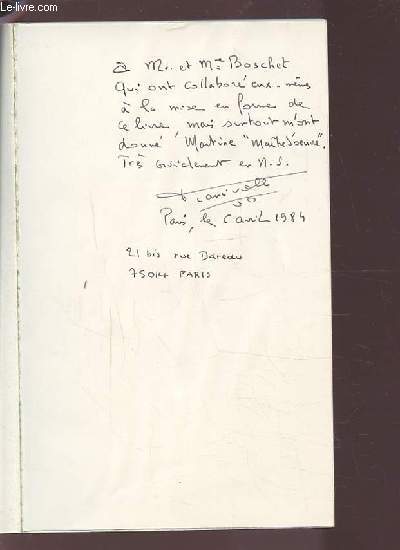 Le-livre.com
à Mr. et Mme Boschet
qui ont collaboré eux-mêmes
à la mise en forme de
ce livre, mais surtout m'ont
donné "Martine "Maître d'oeuvre".
Très cordialement en N.S.
Paris, le 6 avril 1984
21 bis rue Bareau
75014 PARIS